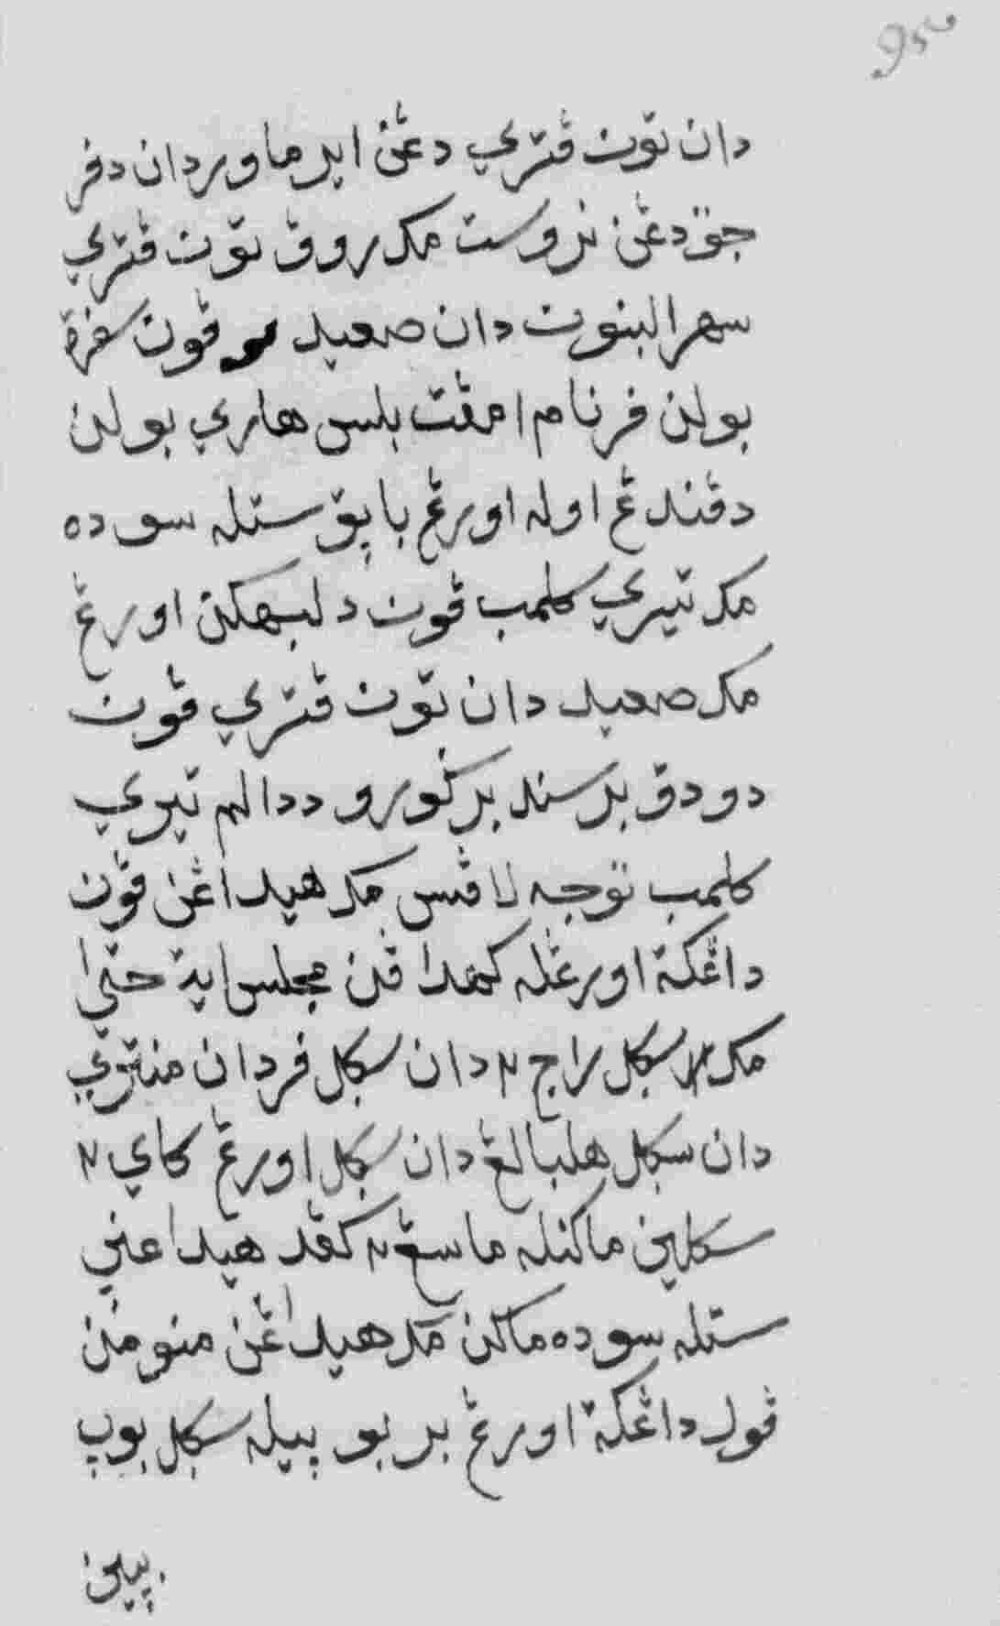 دان تون ڤتري دڠن اير ماور دان دڤر
جق دڠن نروست مک روڤ تون ڤتري
سهرالبنون دان صعيد ڤون سڤرة
بولن ڤرنام امڤت بلس هاري بولن
دڤندڠ اوله اورڠ باپق ستله سوده
مک تيري کلمب ڤون دلبهکن اورڠ
مک صعيد دان تون ڤتري ڤون
دودق برسند برݢورو ددالم تيري
کلمب توجه لاڤس مک هيداڠن ڤون
داڠکة اورڠله کهداڤن مجلس ايت حتي
مک سکل راج٢ دان سکل ڤردان منتري
دان سکل هلبالڠ دان سکل اورڠ کاي٢
سکلين ماکنله ماسڠ٢ کڤد هيداڠني
ستله سوده ماکن مک هيداڠن منومن
ڤول داڠکة اورڠ بربو بيله سکل بوڽ
بيين